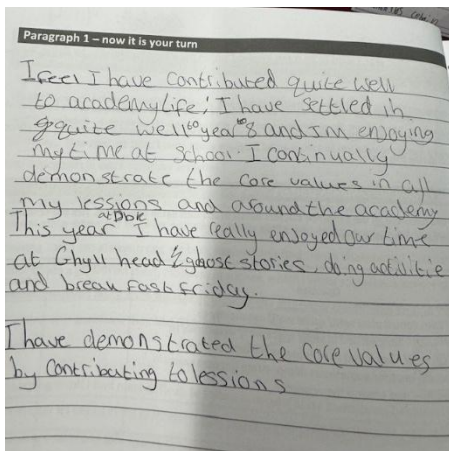 Paragraph 1 – now it is your turn
I feel I have contributed quite well
to academy life; I have settled in
quite well to year to 8 and I'm enjoying
my time at school. I continually
demonstrate the core values in all
my lessions and around the academy
This year at Dbk I have really enjoyed our time
at Ghyll head, ghost stories, doing activitie
and break fast friday.
I have demonstrated the core values
by contributing to lessions